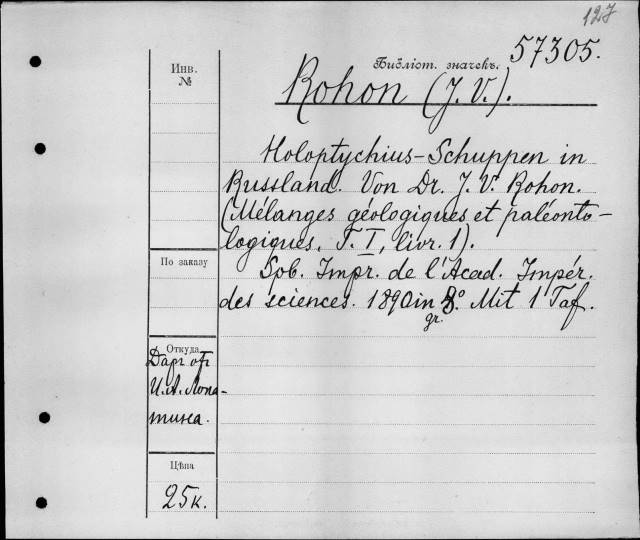 127
Библіот. значекъ. 57305.
Инв.
№
Rohon (J. V.).
Holoptychius-Schuppen in
Russland. Von Dr. J. V. Rohon.
(Mélanges géologiques et paléonto-
logiques. T. I, livr. 1).
По заказу
Spb. Impr. de l'Acad. Impér.
des sciences. 1890 in 8º. Mit 1 Taf.
gr.
Откуда
Даръ отъ
И. А. Лопа-
тина.
Цѣна
25к.